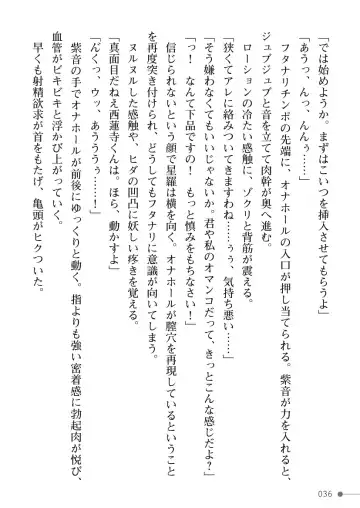 「では始めようか。まずはこいつを挿入させてもらうよ」
「あうっ、んっ、んんぅ……っ」
　フタナリチンポの先端に、オナホールの入口が押し当てられる。紫音が力を入れると、
ジュブジュブと音を立てて肉幹が奥へ進む。
　ローションの冷たい感触に、ゾクリと背筋が震える。
「狭くてアレに絡みついてきますわね……ぅぅ、気持ち悪い……」
「そう嫌わなくてもいいじゃないか。君や私のオマンコだって、きっとこんな感じだよ？」
「っ！　なんて下品ですの！　もっと慎みをもちなさい！」
　信じられないという顔で星羅は横を向く。オナホールが膣穴を再現しているということ
を再度突き付けられ、どうしてもフタナリに意識が向いてしまう。
　ヌルヌルした感触や、ヒダの凹凸に妖しい疼きを覚える。
「真面目だねえ西蓮寺くんは。ほら、動かすよ」
「んくっ、ウッ、あううぅぅ……！」
　紫音の手でオナホールが前後にゆっくりと動く。指よりも強い密着感に勃起肉が悦び、
血管がビキビキと浮かび上がっていく。
　早くも射精欲求が首をもたげ、亀頭がヒクついた。
036